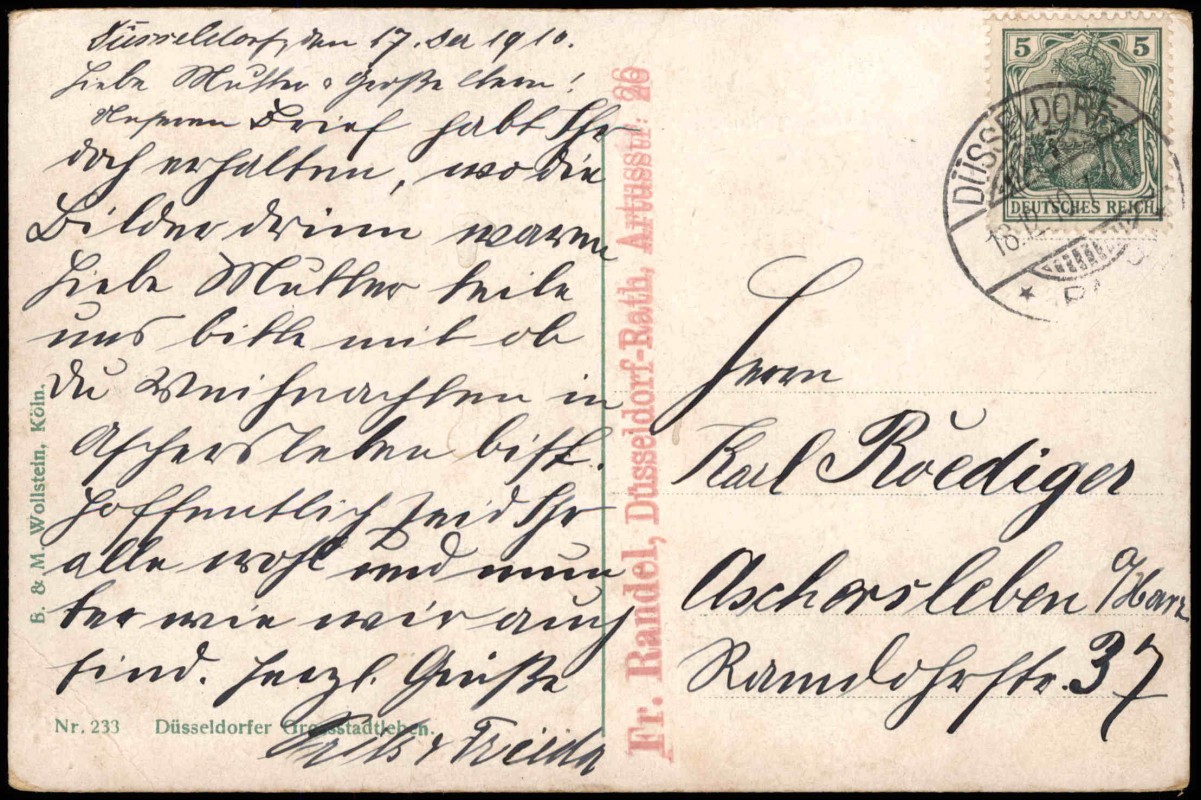 Düsseldorf, den 17. Dez 1910.
Liebe Mutter & Großeltern!
Unseren Brief habt Ihr
doch erhalten, wo die
Bilder drinn waren
Liebe Mutter teile
uns bitte mit ob
Du Weihnachten in
Aschersleben bist.
Hoffentlich seid Ihr
alle wohl und mun
ter wie wir auch
sind. Herzl. Grüße
Fritz & Frieda
B. & M. Wollstein, Köln.
Nr. 233 Düsseldorfer Grossstadtleben.
Fr. Randel, Düsseldorf-Rath, Artusstr: 26
5 5
DEUTSCHES REICH
DÜSSELDORF
18.12
Herrn
Karl Roediger
Aschersleben a/Harz
Ramdohrstr. 37